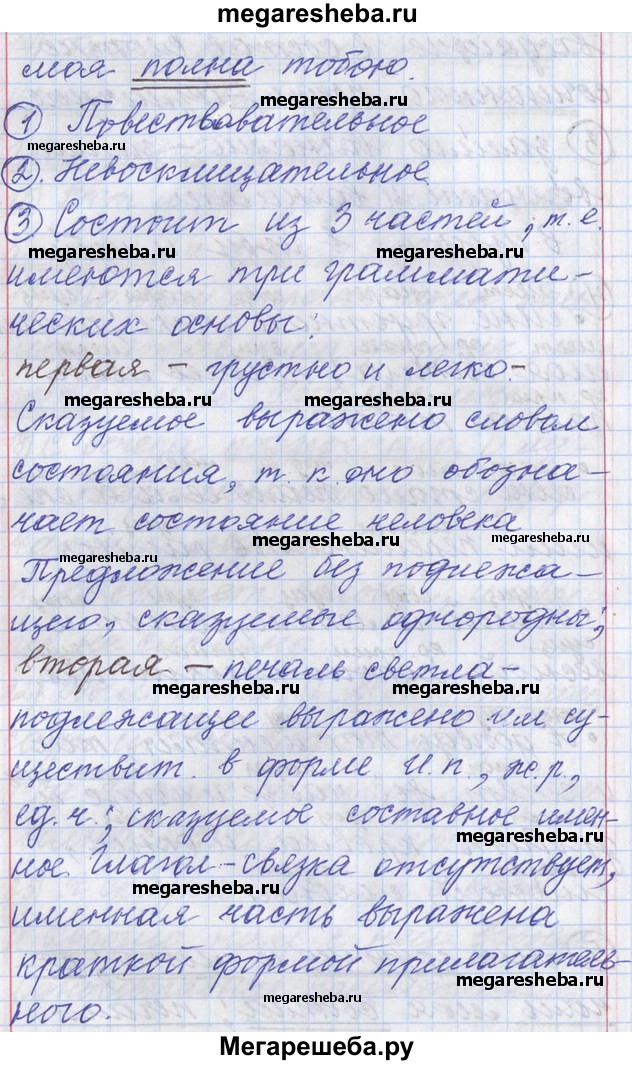 megaresheba.ru
моя полна тобою.
megaresheba.ru
① Повествовательное
megaresheba.ru
②. Невосклицательное
③ Состоит из 3 частей, т.е.
megaresheba.ru megaresheba.ru
имеются три граммати-
ческих основы:
первая – грустно и легко.-
megaresheba.ru megaresheba.ru
Сказуемое выражено словом
состояния, т.к. оно обозна-
чает состояние человека
megaresheba.ru
megaresheba.ru
Предложение без подлежа-
щего, сказуемые однородны;
вторая – печаль светла-
megaresheba.ru megaresheba.ru
подлежащее выражено им су-
ществит. в форме И.п., ж.р.,
ед.ч.; сказуемое составное имен-
megaresheba.ru
ное. Глагол-связка отсутствует,
megaresheba.ru
именная часть выражена
краткой формой прилагатель-
megaresheba.ru megaresheba.ru
ного.
Мегарешеба.ру